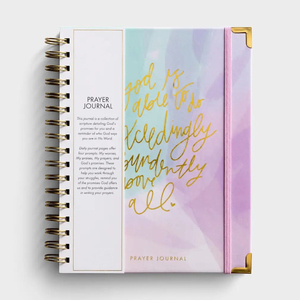 PRAYER
JOURNAL
This journal is a collection of
scripture detailing God's
promises for you and a
reminder of who God says
you are in His Word.
Daily journal pages offer
four prompts: My worries,
My praises, My prayers, and
God's promises. These
prompts are designed to
help you work through
your struggles, remind you
of the promises God offers
us and to provide guidance
in writing your prayers.
god is
able to do
exceedingly
abundantly
above
all.
PRAYER JOURNAL